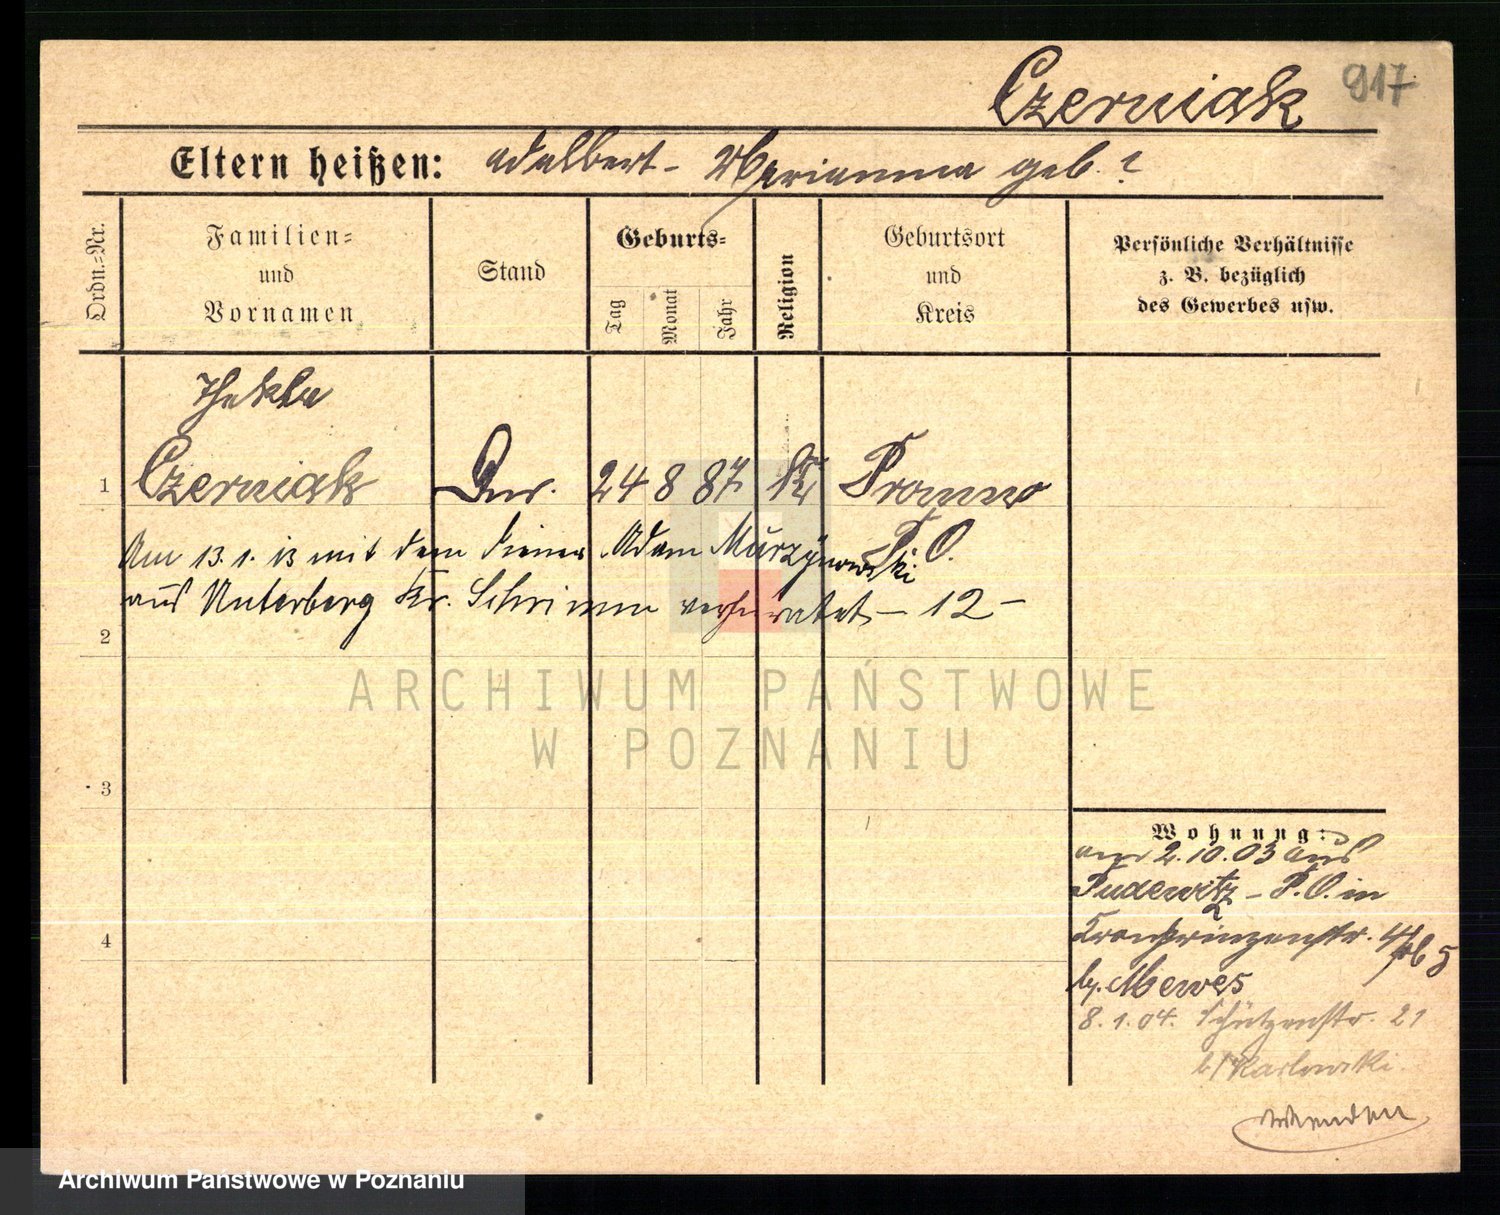 Czerniak 917
Eltern heißen: Adalbert - Marianna geb. ?
Ordn.=Nr.
Familien=
und
Vornamen
Stand
Geburts=
Tag
Monat
Jahr
Religion
Geburtsort
und
Kreis
Persönliche Verhältnisse
z. B. bezüglich
des Gewerbes usw.
Thekla
1 Czerniak 24 8 87 kt Promno
P. O.
Am 13. 1. 13 mit dem Diener Adam Murzynowski
aus Unterberg Kr. Schrimm verheiratet - 12 -
2
3
4
Wohnung:
am 2.10.03 aus
Pudewitz - P. O. in
Kronprinzenstr. 5
by. Mewes
8. 1. 04. Schützenstr. 21
b/ Karlowski.
Wenden
ARCHIWUM PAŃSTWOWE
W POZNANIU
Archiwum Państwowe w Poznaniu